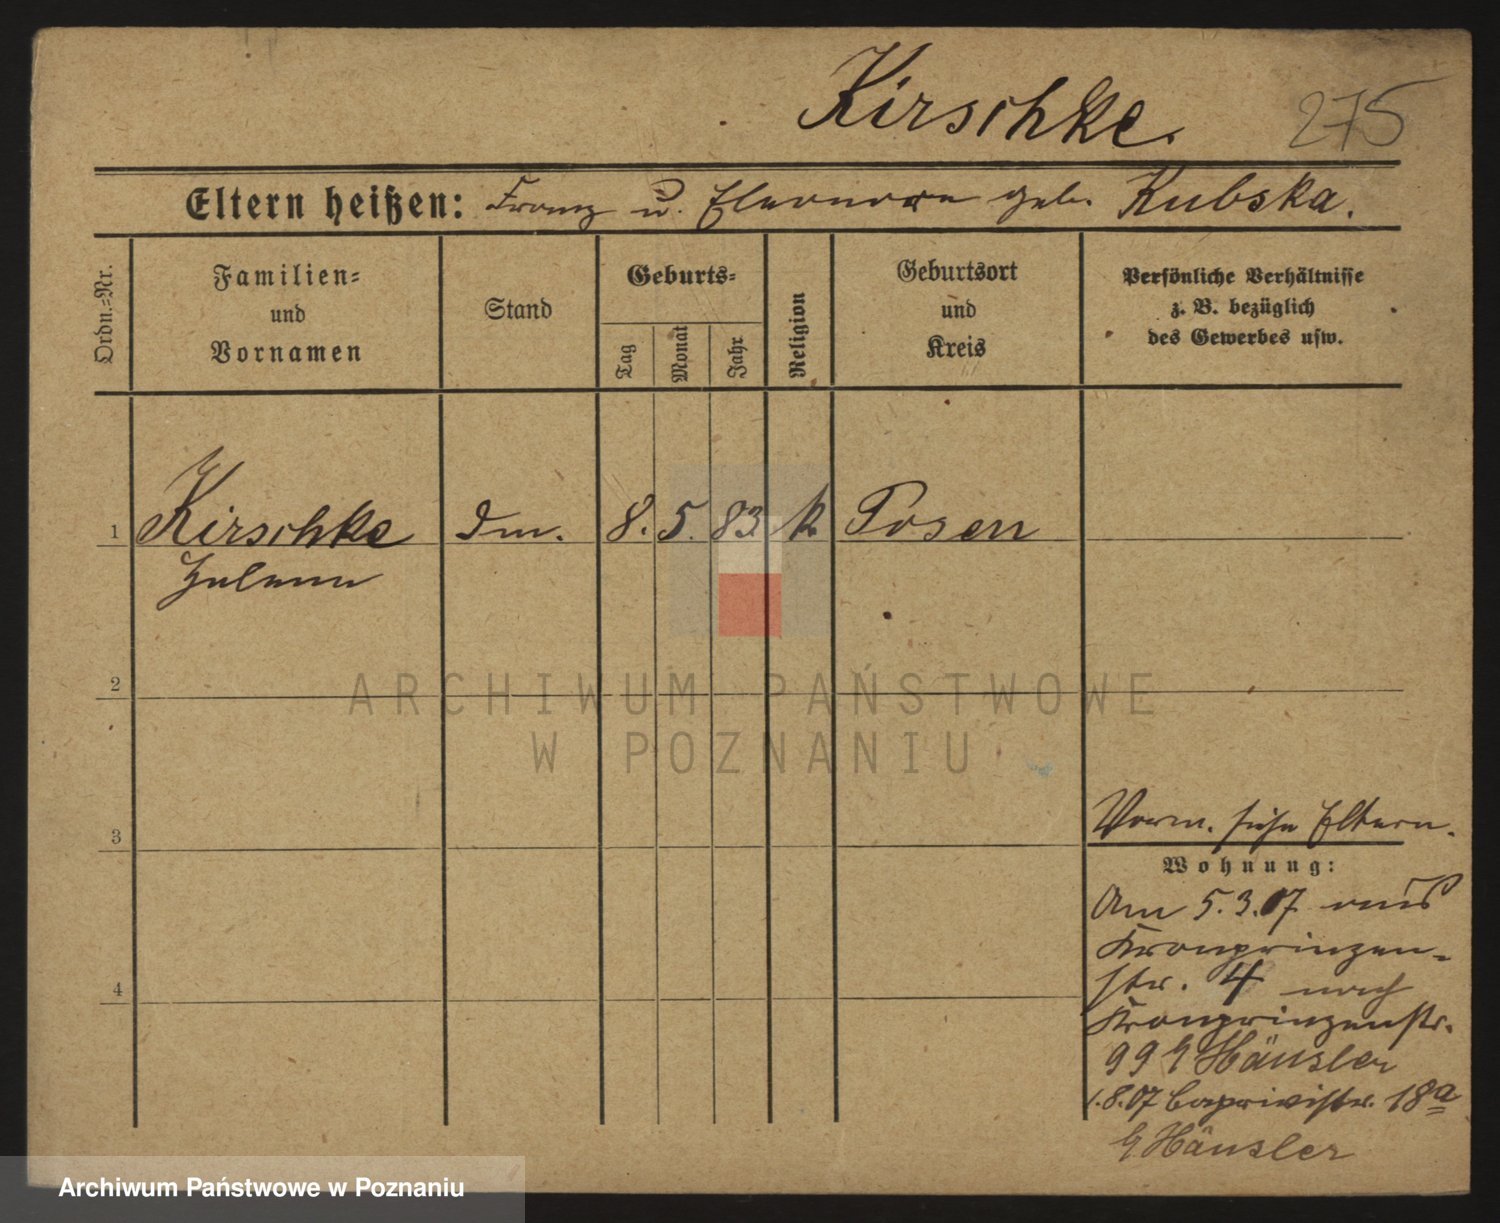 Kirschke. 275
Eltern heißen: Franz u. Eleonore geb. Kubska.
Ordn.=Nr.
Familien=
und
Vornamen
Stand
Geburts=
Tag
Monat
Jahr
Religion
Geburtsort
und
Kreis
Persönliche Verhältnisse
z. B. bezüglich
des Gewerbes usw.
1 Kirschke 8. 5. 83 k Posen
Helene
2
3
4
Vorm. siehe Eltern.
Wohnung:
Am 5.3.07 aus
Kronprinzen-
str. 4 nach
Kronprinzenstr.
99 b Häusler
1.8.07 Caprivistr. 18a
b Häusler
ARCHIWUM PAŃSTWOWE
W POZNANIU
Archiwum Państwowe w Poznaniu